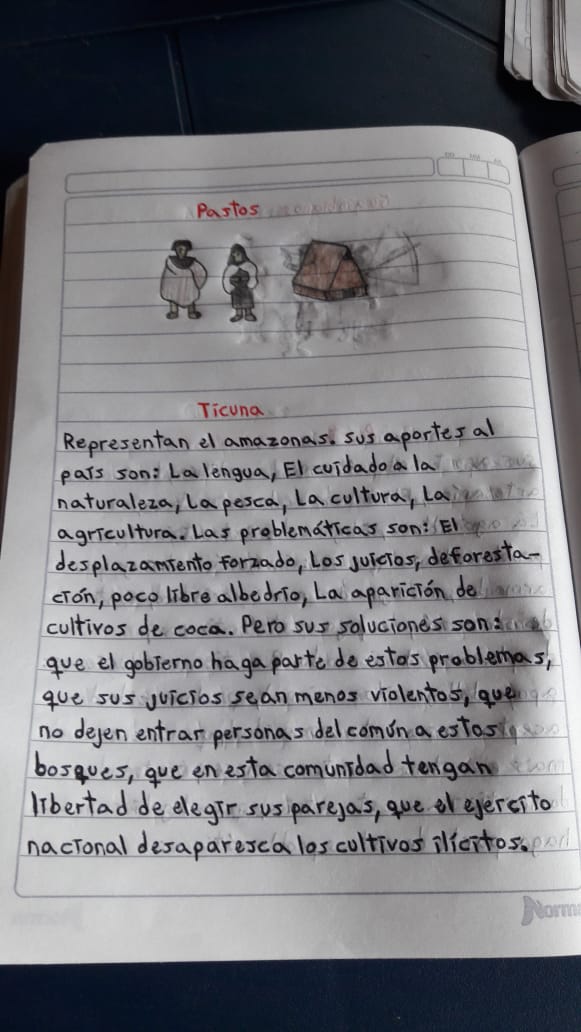 Pastos
Ticuna
Representan el amazonas. sus aportes al
país son: La lengua, El cuidado a la
naturaleza, La pesca, La cultura, La
agricultura. Las problemáticas son: El
desplazamiento forzado, Los juicios, deforesta-
ción, poco libre albedrío, La aparición de
cultivos de coca. Pero sus soluciones son:
que el gobierno haga parte de estos problemas,
que sus juicios sean menos violentos, que
no dejen entrar personas del común a estos
bosques, que en esta comunidad tengan
libertad de elegir sus parejas, que el ejercito
nacional desaparesca los cultivos ilícitos.
Norma